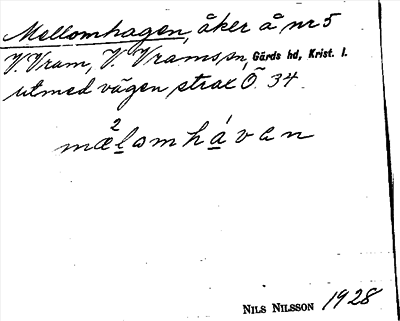 Mellomhagen, åker å nr 5
V. Vram, V. Vramssn, Gärds hd, Krist. l.
utmed vägen strax Ö 34
mæ²lomhávan
NILS NILSSON 1928